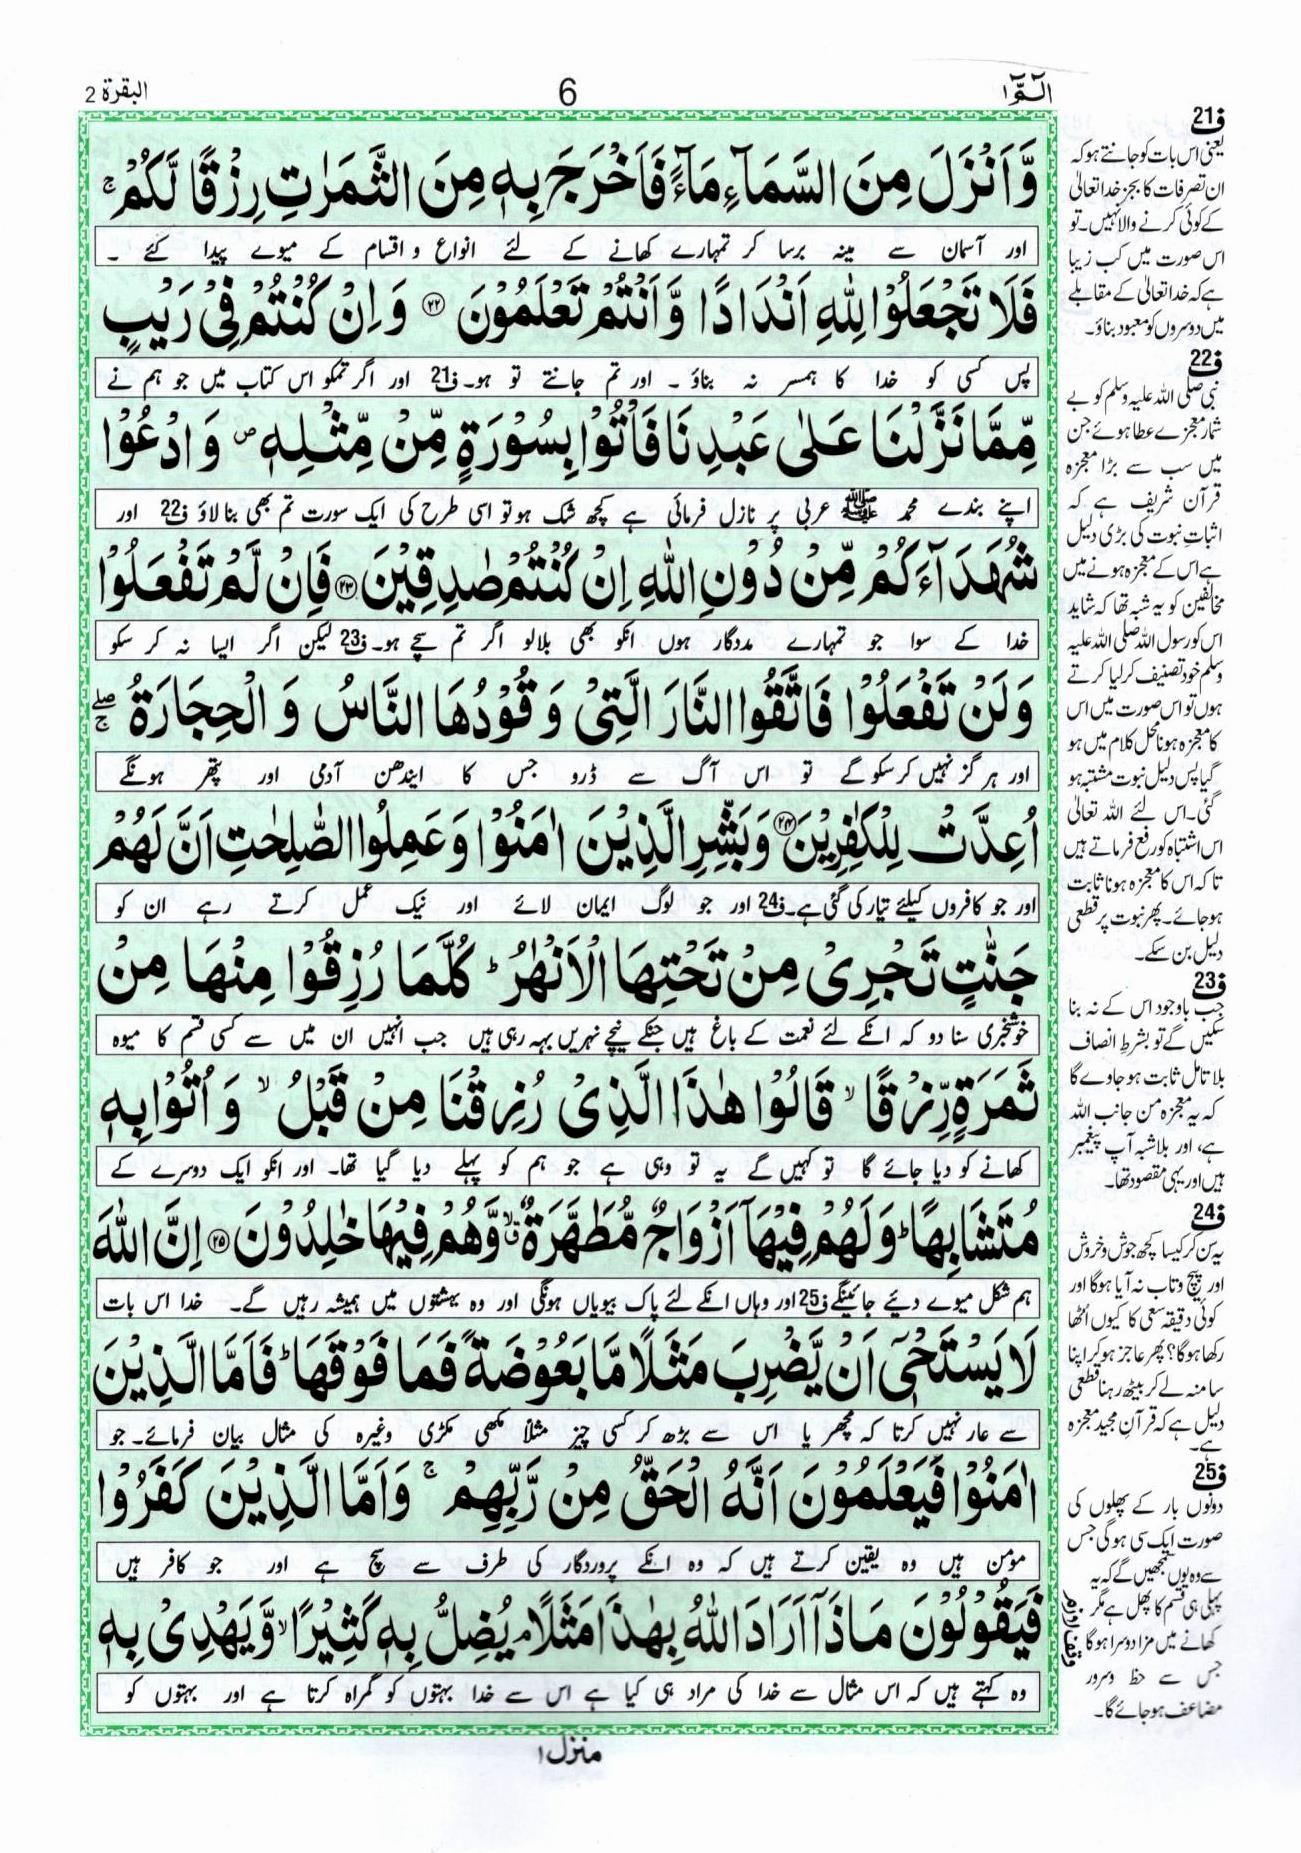 الٓمّٓ ۱
6
البقرة 2
وَّاَنْزَلَ مِنَ السَّمَآءِ مَآءً فَاَخْرَجَ بِهٖ مِنَ الثَّمَرٰتِ رِزْقًا لَّكُمْ ۚ
اور آسمان سے مینہ برسا کر تمہارے کھانے کے لئے انواع و اقسام کے میوے پیدا کئے ۔
فَلَا تَجْعَلُوْا لِلّٰهِ اَنْدَادًا وَّاَنْتُمْ تَعْلَمُوْنَ ﴿۲۲﴾ وَاِنْ كُنْتُمْ فِیْ رَیْبٍ
پس کسی کو خدا کا ہمسر نہ بناؤ ۔ اور تم جانتے تو ہو۔ ف21 اور اگر تمکو اس کتاب میں جو ہم نے
مِّمَّا نَزَّلْنَا عَلٰی عَبْدِنَا فَاْتُوْا بِسُوْرَةٍ مِّنْ مِّثْلِهٖ ۪ وَادْعُوْا
اپنے بندے محمد ﷺ عربی پر نازل فرمائی ہے کچھ شک ہو تو اسی طرح کی ایک سورت تم بھی بنا لاؤ ف22 اور
شُهَدَآءَكُمْ مِّنْ دُوْنِ اللّٰهِ اِنْ كُنْتُمْ صٰدِقِیْنَ ﴿۲۳﴾ فَاِنْ لَّمْ تَفْعَلُوْا
خدا کے سوا جو تمہارے مددگار ہوں انکو بھی بلالو اگر تم سچے ہو۔ ف23 لیکن اگر ایسا نہ کر سکو
وَلَنْ تَفْعَلُوْا فَاتَّقُوا النَّارَ الَّتِیْ وَقُوْدُهَا النَّاسُ وَالْحِجَارَةُ ۖۚ
اور ہر گز نہیں کر سکو گے تو اس آگ سے ڈرو جس کا ایندھن آدمی اور پتھر ہونگے
اُعِدَّتْ لِلْكٰفِرِیْنَ ﴿۲۴﴾ وَبَشِّرِ الَّذِیْنَ اٰمَنُوْا وَعَمِلُوا الصّٰلِحٰتِ اَنَّ لَهُمْ
اور جو کافروں کیلئے تیار کی گئی ہے۔ ف24 اور جو لوگ ایمان لائے اور نیک عمل کرتے رہے ان کو
جَنّٰتٍ تَجْرِیْ مِنْ تَحْتِهَا الْاَنْهٰرُ ؕ كُلَّمَا رُزِقُوْا مِنْهَا مِنْ
خوشخبری سنا دو کہ انکے لئے نعمت کے باغ ہیں جنکے نیچے نہریں بہہ رہی ہیں جب انہیں ان میں سے کسی قسم کا میوہ
ثَمَرَةٍ رِّزْقًا ۙ قَالُوْا هٰذَا الَّذِیْ رُزِقْنَا مِنْ قَبْلُ ۙ وَاُتُوْا بِهٖ
کھانے کو دیا جائے گا تو کہیں گے یہ تو وہی ہے جو ہم کو پہلے دیا گیا تھا۔ اور انکو ایک دوسرے کے
مُتَشَابِهًا ؕ وَلَهُمْ فِیْهَآ اَزْوَاجٌ مُّطَهَّرَةٌ ۙۗ وَّهُمْ فِیْهَا خٰلِدُوْنَ ﴿۲۵﴾ اِنَّ اللّٰهَ
ہم شکل میوے دیئے جائینگے ف25 اور وہاں انکے لئے پاک بیویاں ہونگی اور وہ بہشتوں میں ہمیشہ رہیں گے۔ خدا اس بات
لَا یَسْتَحْیٖۤ اَنْ یَّضْرِبَ مَثَلًا مَّا بَعُوْضَةً فَمَا فَوْقَهَا ؕ فَاَمَّا الَّذِیْنَ
سے عار نہیں کرتا کہ مچھر یا اس سے بڑھ کر کسی چیز مثلاً مکھی مکڑی وغیرہ کی مثال بیان فرمائے۔ جو
اٰمَنُوْا فَیَعْلَمُوْنَ اَنَّهُ الْحَقُّ مِنْ رَّبِّهِمْ ۚ وَاَمَّا الَّذِیْنَ كَفَرُوْا
مومن ہیں وہ یقین کرتے ہیں کہ وہ انکے پروردگار کی طرف سے سچ ہے اور جو کافر ہیں
فَیَقُوْلُوْنَ مَاذَآ اَرَادَ اللّٰهُ بِهٰذَا مَثَلًا ۘ یُضِلُّ بِهٖ كَثِیْرًا ۙ وَّیَهْدِیْ بِهٖ
وہ کہتے ہیں کہ اس مثال سے خدا کی مراد ہی کیا ہے اس سے خدا بہتوں کو گمراہ کرتا ہے اور بہتوں کو
منزل ۱
ف21
یعنی اس بات کو جانتے ہو کہ
ان تصرفات کا بجز خدا تعالیٰ
کے کوئی کرنے والا نہیں۔ تو
اس صورت میں کب زیبا
ہے کہ خدا تعالیٰ کے مقابلے
میں دوسروں کو معبود بناؤ۔
ف22
نبی صلی اللہ علیہ وسلم کو بے
شمار معجزے عطا ہوئے جن
میں سب سے بڑا معجزہ
قرآن شریف ہے کہ
اثباتِ نبوت کی بڑی دلیل
ہے اس کے معجزہ ہونے میں
مخالفین کو یہ شبہ تھا کہ شاید
اس کو رسول اللہ صلی اللہ علیہ
وسلم خود تصنیف کر لیا کرتے
ہوں تو اس صورت میں اس
کا معجزہ ہونا محل کلام میں ہو
گیا پس دلیل نبوت مشتبہ ہو
گئی۔ اس لئے اللہ تعالیٰ
اس اشتباہ کو رفع فرماتے ہیں
تاکہ اس کا معجزہ ہونا ثابت
ہو جائے۔ پھر نبوت پر قطعی
دلیل بن سکے۔
ف23
جب باوجود اس کے نہ بنا
سکیں گے تو بشرط انصاف
بلا تامل ثابت ہو جاوے گا
کہ یہ معجزہ من جانب اللہ
ہے، اور بلاشبہ آپ پیغمبر
ہیں اور یہی مقصود تھا۔
ف24
یہ سن کر کیسا کچھ جوش و خروش
اور پیچ و تاب نہ آیا ہوگا اور
کوئی دقیقہ سعی کا کیوں اُٹھا
رکھا ہوگا؟ پھر عاجز ہو کر اپنا
سا منہ لے کر بیٹھ رہنا قطعی
دلیل ہے کہ قرآن مجید معجزہ
ہے۔
ف25
دونوں بار کے پھلوں کی
صورت ایک سی ہوگی جس
سے وہ یوں سمجھیں گے کہ یہ
پہلی ہی قسم کا پھل ہے مگر
کھانے میں مزا دوسرا ہوگا
جس سے حظ و سرور
مضاعف ہو جائے گا۔
وقف لازم